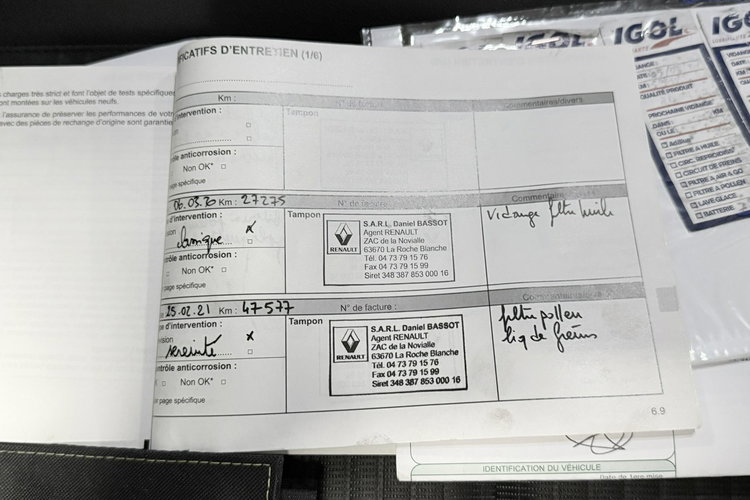 charges très strict et font l'objet de tests spécifiques
ont montées sur les véhicules neufs.
l'assurance de préserver les performances de votr
avec des pièces de rechange d'origine sont garantie
ICATIFS D'ENTRETIEN (1/6)
Km :
N° de facture :
Commentaires/divers
d'intervention :
Tampon
ôle anticorrosion :
Non OK*
page spécifique
06.03.20 Km : 27275
N° de facture :
Commentaire
d'intervention :
Tampon
classique
x
Vidange filtre huile
RENAULT
S.A.R.L. Daniel BASSOT
Agent RENAULT
ZAC de la Novialle
63670 La Roche Blanche
Tél. 04 73 79 15 76
Fax 04 73 79 15 99
Siret 348 387 853 000 16
ntrôle anticorrosion :
Non OK*
page spécifique
25.02.21 Km : 47577
N° de facture :
Commentaires
e d'intervention :
Tampon
vision
x
sereinité
filtre pollen
liq de freins
RENAULT
S.A.R.L. Daniel BASSOT
Agent RENAULT
ZAC de la Novialle
63670 La Roche Blanche
Tél. 04 73 79 15 76
Fax 04 73 79 15 99
Siret 348 387 853 000 16
ntrôle anticorrosion :
Non OK*
page spécifique
6.9
IGOL
IGOL
VIDANGE
DATE
KM
QUALITE PRODUIT
PROCHAINE VIDANGE
DANS KM
OU LE
AdBlue
FILTRE A HUILE
CIRC. REFROIDISS
CIRCUIT DE FREINS
FILTRE A AIR & GO
FILTRE A POLLEN
LAVE GLACE
BATTERIE
IDENTIFICATION DU VÉHICULE
Date de 1ère mise